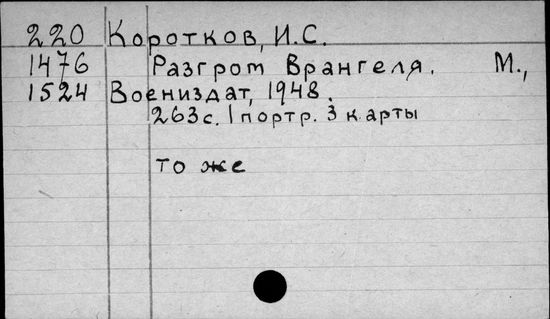 220 Коротков, И.С.
1476 Разгром Врангеля. М.,
1524 Воениздат, 1948.
263с. 1 портр. 3 карты
то же